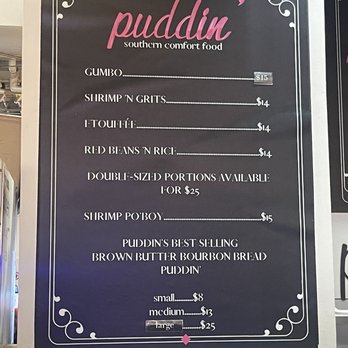 puddin'
southern comfort food
GUMBO $15
SHRIMP 'N GRITS $14
ETOUFFÉE $14
RED BEANS 'N RICE $14
DOUBLE-SIZED PORTIONS AVAILABLE
FOR $25
SHRIMP PO'BOY $15
PUDDIN'S BEST SELLING
BROWN BUTTER BOURBON BREAD
PUDDIN'
small $8
medium $13
large $25